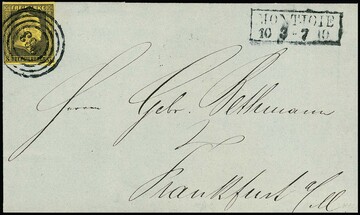 MONTJOIE
10 3-7 10
Herrn Gebr. Bethmann
Frankfurt a/M